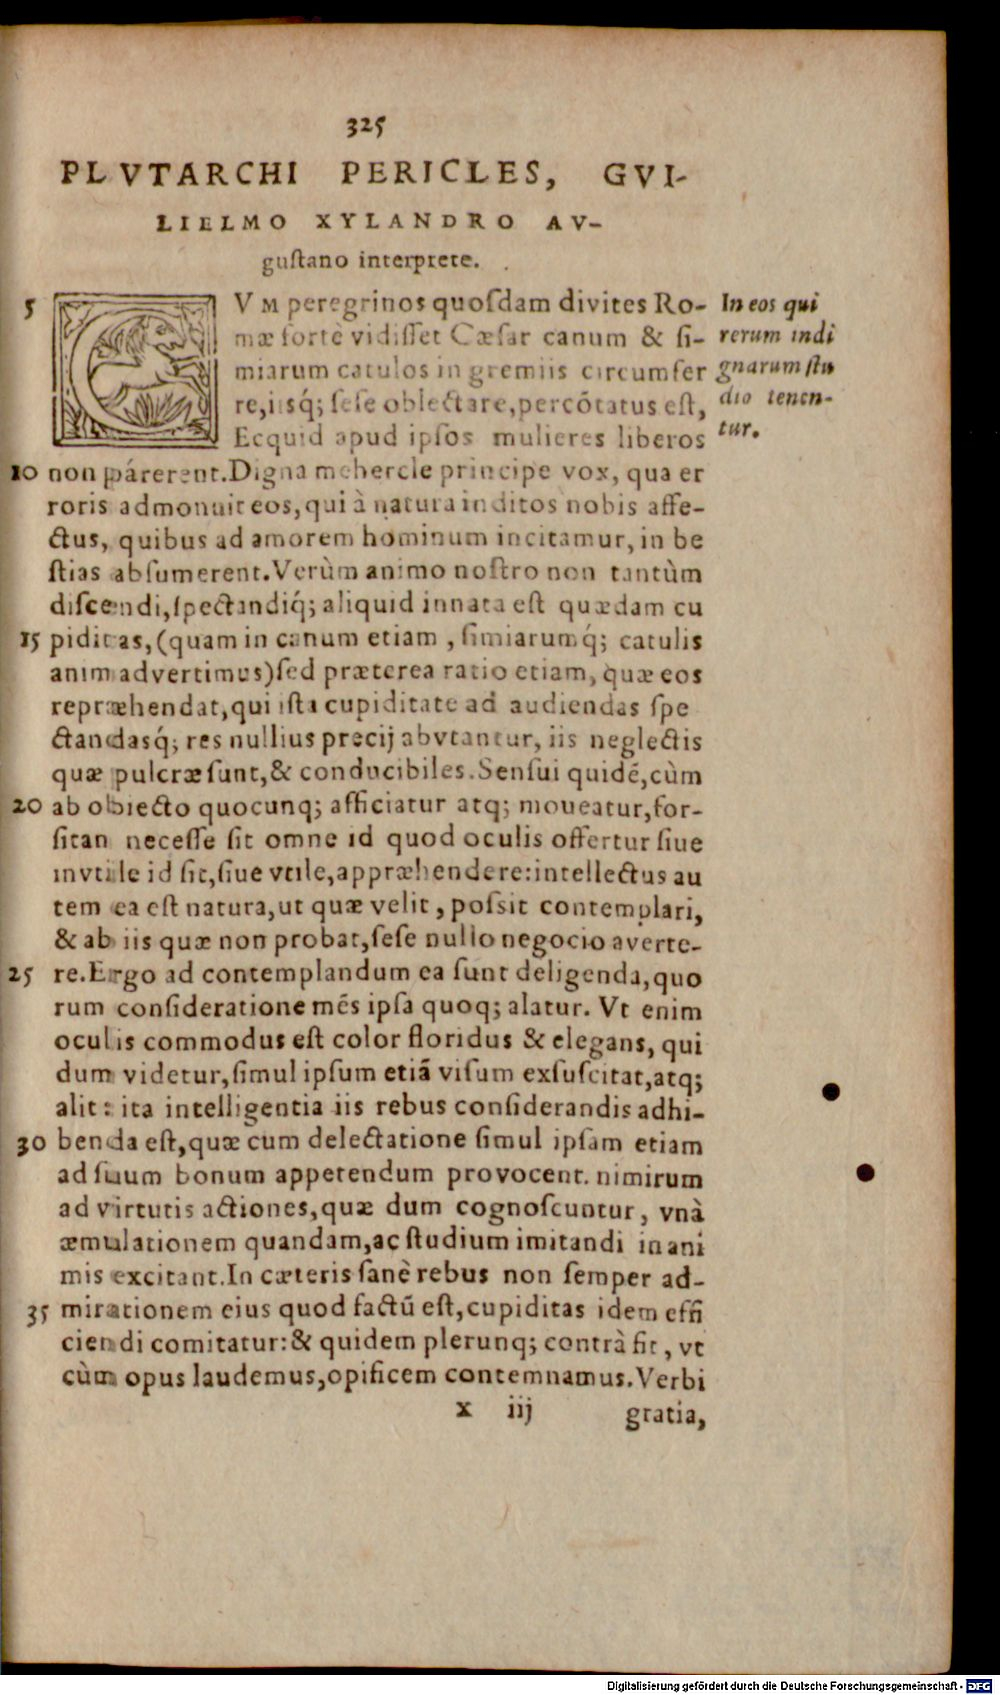 325
PLVTARCHI PERICLES, GVI-
LIELMO XYLANDRO AV-
gustano interprete.
5 CVM peregrinos quosdam divites Ro-
mæ fortè vidisset Cæsar canum & si-
miarum catulos in gremiis circumfer
re, iisq́; sese oblectare, percõtatus est,
Ecquid apud ipsos mulieres liberos
In eos qui
rerum indi
gnarum stu
dio tenen-
tur.
10 non párerent. Digna mehercle principe vox, qua er
roris admonuit eos, qui à natura inditos nobis affe-
ctus, quibus ad amorem hominum incitamur, in be
stias absumerent. Verùm animo nostro non tantùm
discendi, spectandiq́; aliquid innata est quædam cu
15 piditas, (quam in canum etiam, simiarumq́; catulis
animadvertimus) sed præterea ratio etiam, quæ eos
repræhendat, qui ista cupiditate ad audiendas spe
ctandasq́; res nullius precij abvtantur, iis neglectis
quæ pulcræ sunt, & conducibiles. Sensui quidẽ, cùm
20 ab obiecto quocunq; afficiatur atq; moueatur, for-
sitan necesse sit omne id quod oculis offertur siue
invtile id sit, siue vtile, appræhendere: intellectus au
tem ea est natura, ut quæ velit, possit contemplari,
& ab iis quæ non probat, sese nullo negocio averte-
25 re. Ergo ad contemplandum ea sunt deligenda, quo
rum consideratione mẽs ipsa quoq; alatur. Vt enim
oculis commodus est color floridus & elegans, qui
dum videtur, simul ipsum etiã visum exsuscitat, atq;
alit: ita intelligentia iis rebus considerandis adhi-
30 benda est, quæ cum delectatione simul ipsam etiam
ad suum bonum appetendum provocent. nimirum
ad virtutis actiones, quæ dum cognoscuntur, vnà
æmulationem quandam, ac studium imitandi in ani
mis excitant. In cæteris sanè rebus non semper ad-
35 mirationem eius quod factũ est, cupiditas idem effi
ciendi comitatur: & quidem plerunq; contrà fit, vt
cùm opus laudemus, opificem contemnamus. Verbi
x iij gratia,
Digitalisierung gefördert durch die Deutsche Forschungsgemeinschaft - DFG